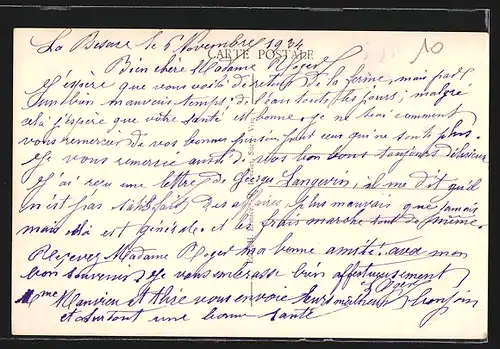 La Besace le 6 Novembre 1934
CARTE POSTALE
10
Bien chère Madame Roger
J'espère que vous voilà de retour de la ferme, mais par
un bien mauvais temps, de l'eau tous les jours, malgré
cela j'espère que votre santé est bonne. Je ne sais comment
vous remercier de vos bonnes pour ceux qui ne sont plus.
Je vous remercie aussi de vos bons bons toujours délicieux
J'ai reçu une lettre de Georges Langevin, il me dit qu'il
n'est pas satisfait des affaires plus mauvais que jamais
mais cela est général et les frais marche tout de même.
Recevez Madame Roger ma bonne amitié avec mon
bon souvenir, je vous embrasse bien affectueusement
Mme et vous envoie leurs meilleurs bonjour
et surtout une bonne santé